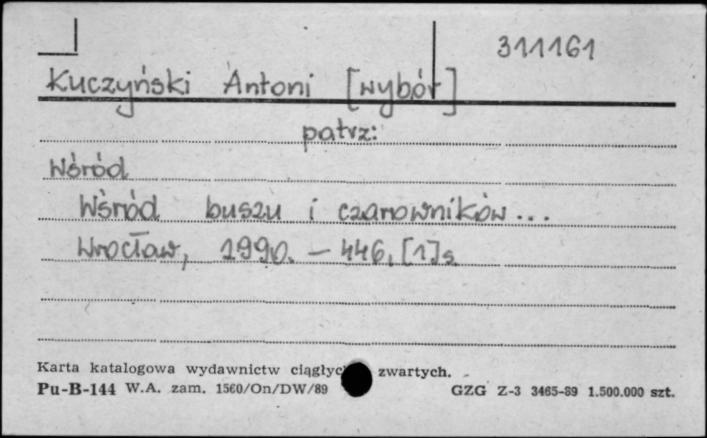 311161
Kuczyński Antoni [wybór]
patrz:
Wśród
Wśród buszu i czarowników...
Wrocław, 1990. – 446, [1] s
Karta katalogowa wydawnictw zwartych.
Pu-B-144 W.A. zam. 1560/On/DW/89 GZG Z-3 3465-89 1.500.000 szt.